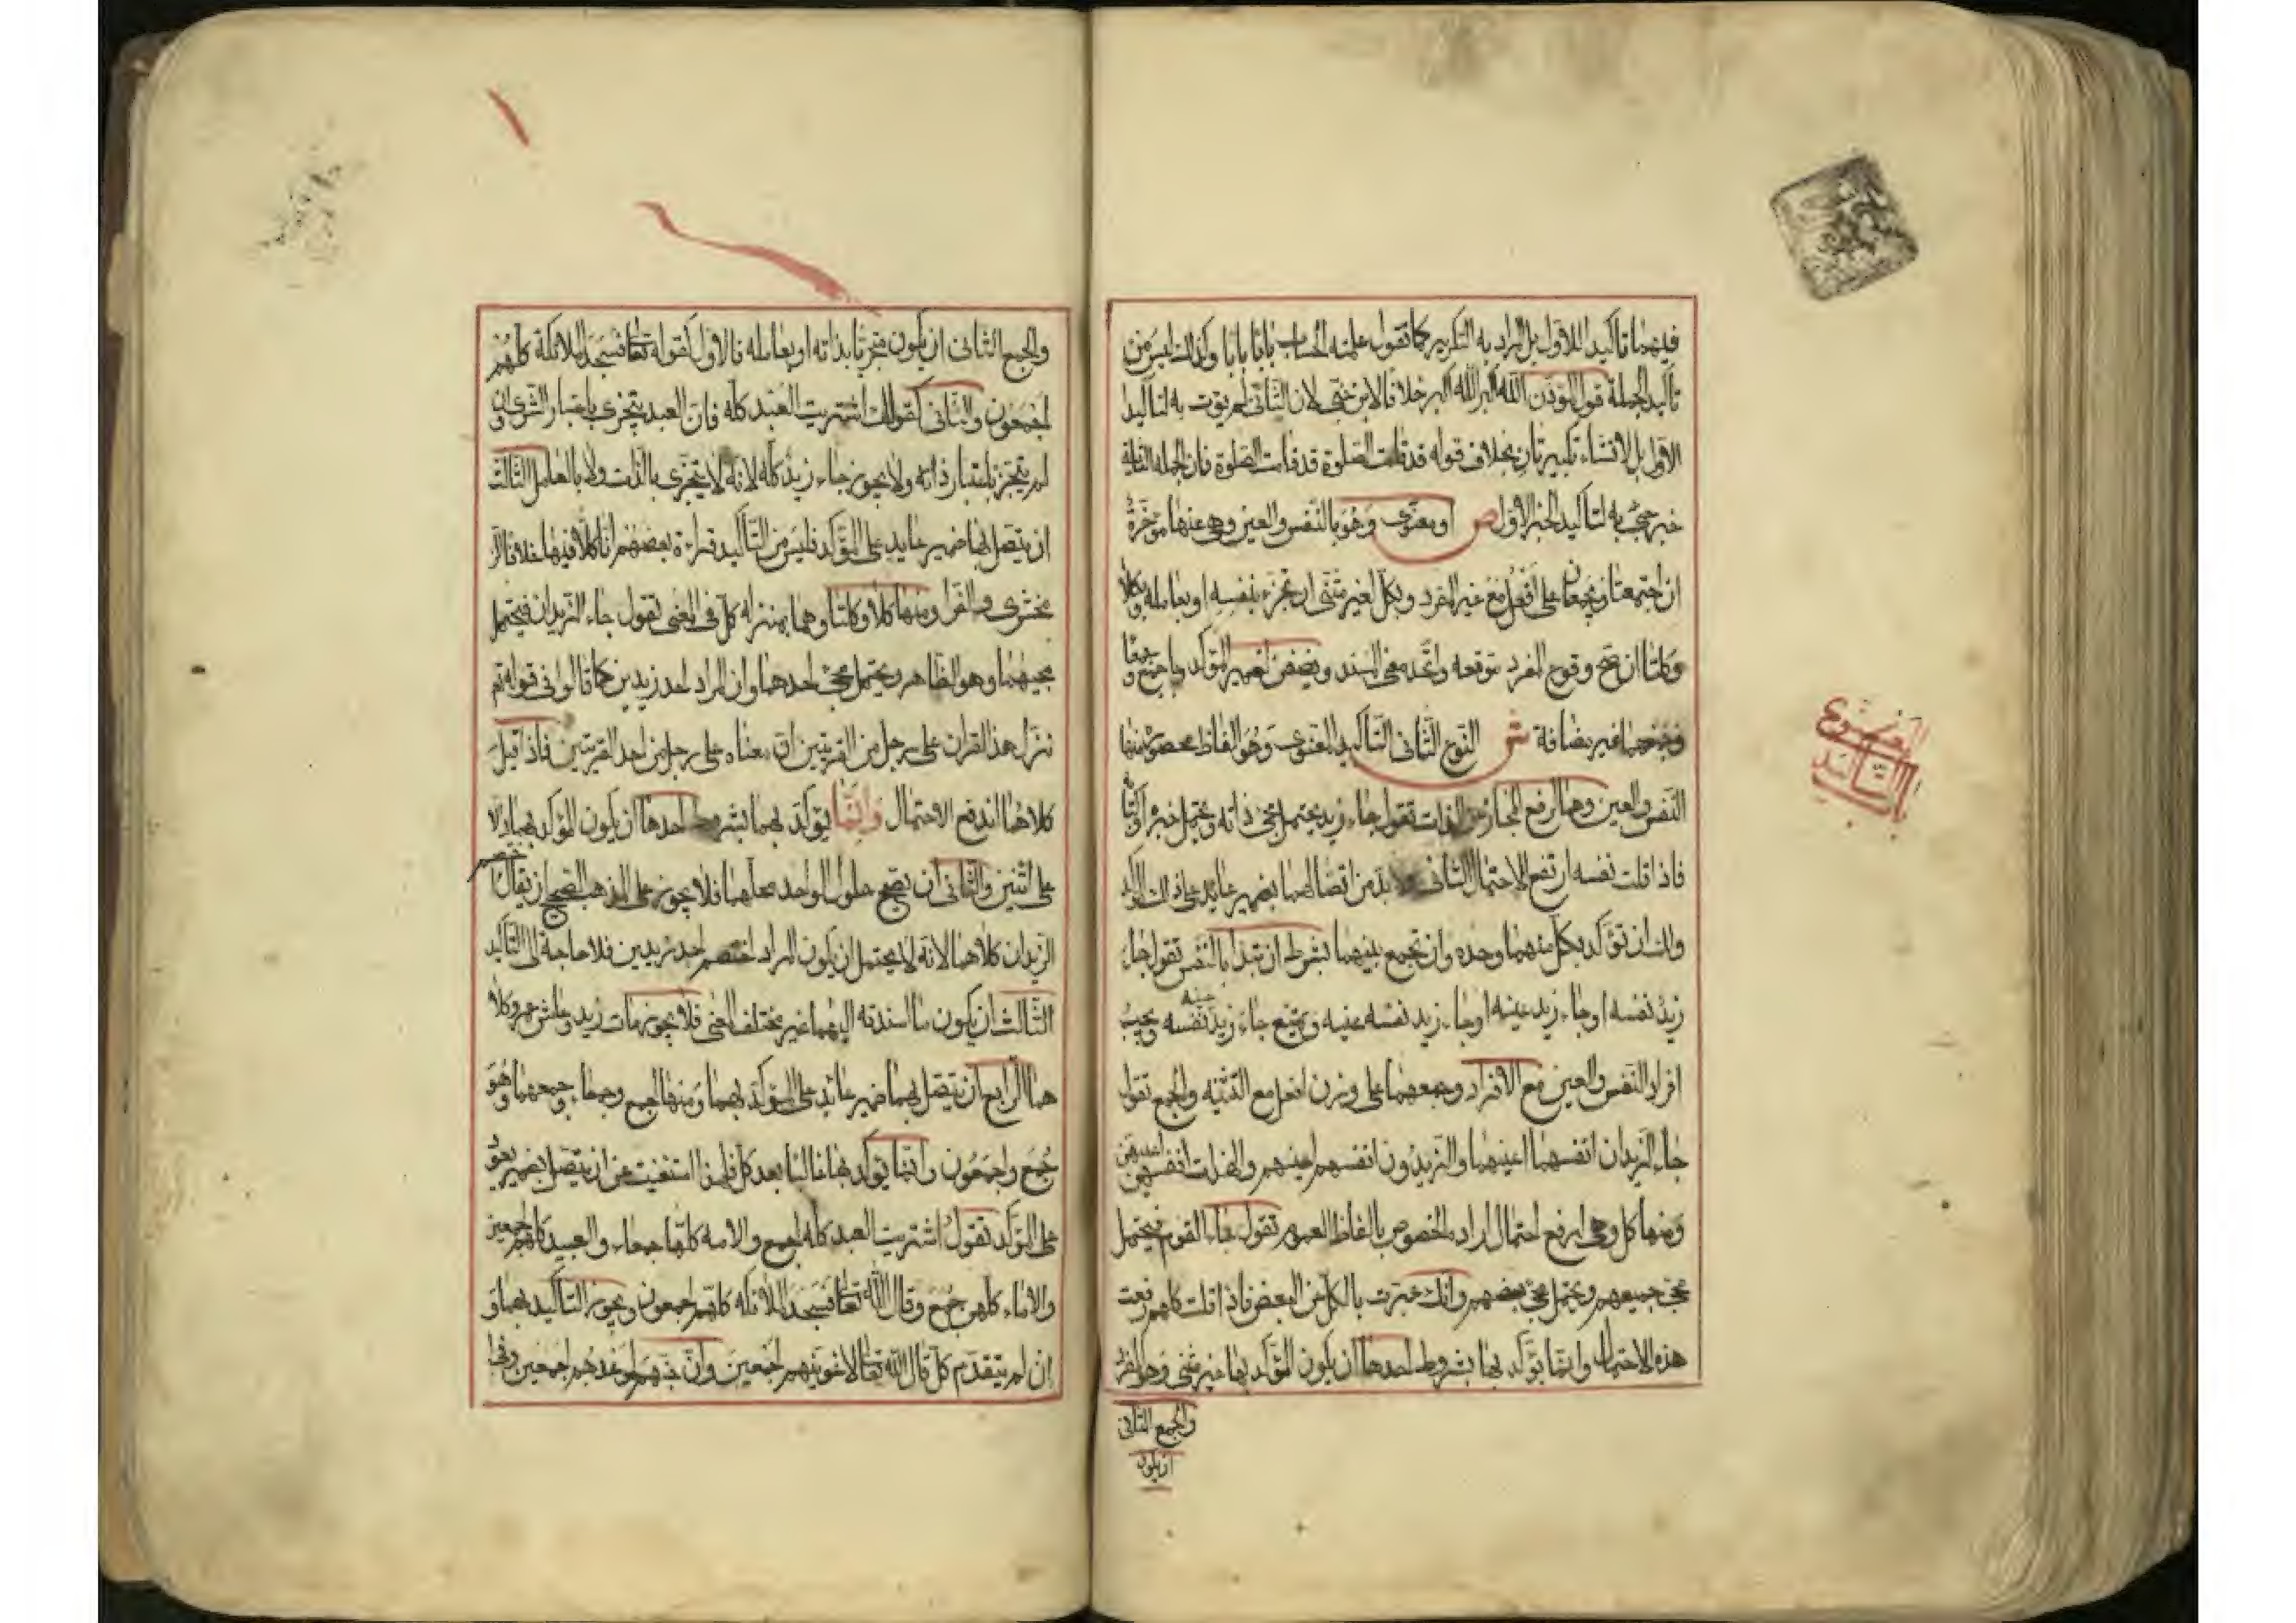 فيهما تأكيدا للاول بل المراد به التكرير كما تقول علمته الحساب بابا بابا وكذلك ليس من
تأكيد الجملة قول المؤذن الله اكبر الله اكبر خلافا لابن جنى لان الثانى لم يؤت به لتأكيد
الاول بل لانشاء تكبير ثان بخلاف قوله قد قامت الصلوة قد قامت الصلوة فان الجملة الثانية
خبر جئ به لتأكيد الخبر الاول ص او معنوى وهو بالنفس والعين وهى عنها مؤخرة
ان اجتمعتا ويجمعان على افعل مع غير المفرد وبكل لغير مثنى ان تجزء بنفسه او بعامله وبكلا
وكلتا ان صح وقوع المفرد موقعه واتحد معنى المسند ويضفن لضمير المؤكد وباجمع وجمعا
وجمعهما غير مضافة ش النوع الثانى التأكيد المعنوى وهو الفاظ محصورة منها
النفس والعين وهما لرفع المجاز عن الذات تقول جاء زيد فيحتمل مجئ ذاته ويحتمل خبره او كتابه
فاذا قلت نفسه ارتفع الاحتمال الثانى ولا بد من اتصالهما بضمير عايد على ذلك المؤكد
ولك ان تؤكد بكل منهما وحده وان تجمع بينهما بشرط ان تبدأ بالنفس تقول جاء
زيد نفسه او جاء زيد عينه او جاء زيد نفسه عينه ويمتنع جاء زيد عينه نفسه ويجب
افراد النفس والعين مع الافراد وجمعهما على وزن افعل مع التثنيه والجمع تقول
جاء الزيدان انفسهما اعينهما والزيدون انفسهم اعينهم والهندات انفسهن اعينهن
ومنها كل وهى لرفع احتمال اراده الخصوص بالفاظ العموم تقول جاء القوم فيحتمل
مجئ جميعهم ويحتمل مجئ بعضهم وانك عبرت بالكل عن البعض فاذا قلت كلهم رفعت
هذه الاحتمال وانما يؤكد بها بشروط احدها ان يكون المؤكد بها غير مثنى وهو المفرد
والجمع الثانى
ان يكون
والجمع الثانى ان يكون متجزئا بذاته او بعامله فالاول كقوله تعا فسجد الملائكة كلهم
اجمعون والثانى كقولك اشتريت العبد كله فان العبد يتجزى باعتبار الشرى وان
لم يتجز باعتبار ذاته ولا يجوز جاء زيد كله لانه لا يتجزى بالذات ولا بالعامل الثالث
ان يتصل بها ضمير عايد على المؤكد فليس من التأكيد قراءة بعضهم انا كلا فيها خلافا للز
مخشرى والفرا ومنها كلا وكلتا وهما بمنزلة كل فى المعنى تقول جاء الزيدان فيحتمل
مجيهما وهو الظاهر ويحتمل مجئ احدهما وان المراد احد زيدين كما قالوا فى قوله تع
نزل هذا القران على رجل من القريتين ان معناه على رجل من احد القريتين فاذا قيل
كلاهما اندفع الاحتمال وانما يؤكد بهما بشروط احدها ان يكون المؤكد بهما دالا
على اثنين والثانى ان يصح حلول الواحد محلهما فلا يجوز على المذهب الصحيح ان يقال اختصم
الزيدان كلاهما لانه لا يحتمل ان يكون المراد اختصم احد زيدين فلا حاجة الى التأكيد
الثالث ان يكون ما اسندته اليهما غير مختلف المعنى فلا يجوز مات زيد وعاش عمرو كلا
هما الرابع ان يتصل بهما ضمير عائد على المؤكد بهما ومنها اجمع وجمعاء وجمعهما وهو
جمع واجمعون وانما يؤكد بها غالبا بعد كل فلهذا استغنيت عن ان يتصل بضمير يعود
على المؤكد تقول اشتريت العبد كله اجمع والامه كلها جمعاء والعبيد كلهم اجمعين
والاماء كلهن جمع وقال الله تعا فسجد الملائكه كلهم اجمعون ويجوز التأكيد بهما و
ان لم يتقدم كل قال الله تعا لاغوينهم اجمعين وان جهنم لموعدهم اجمعين وفى